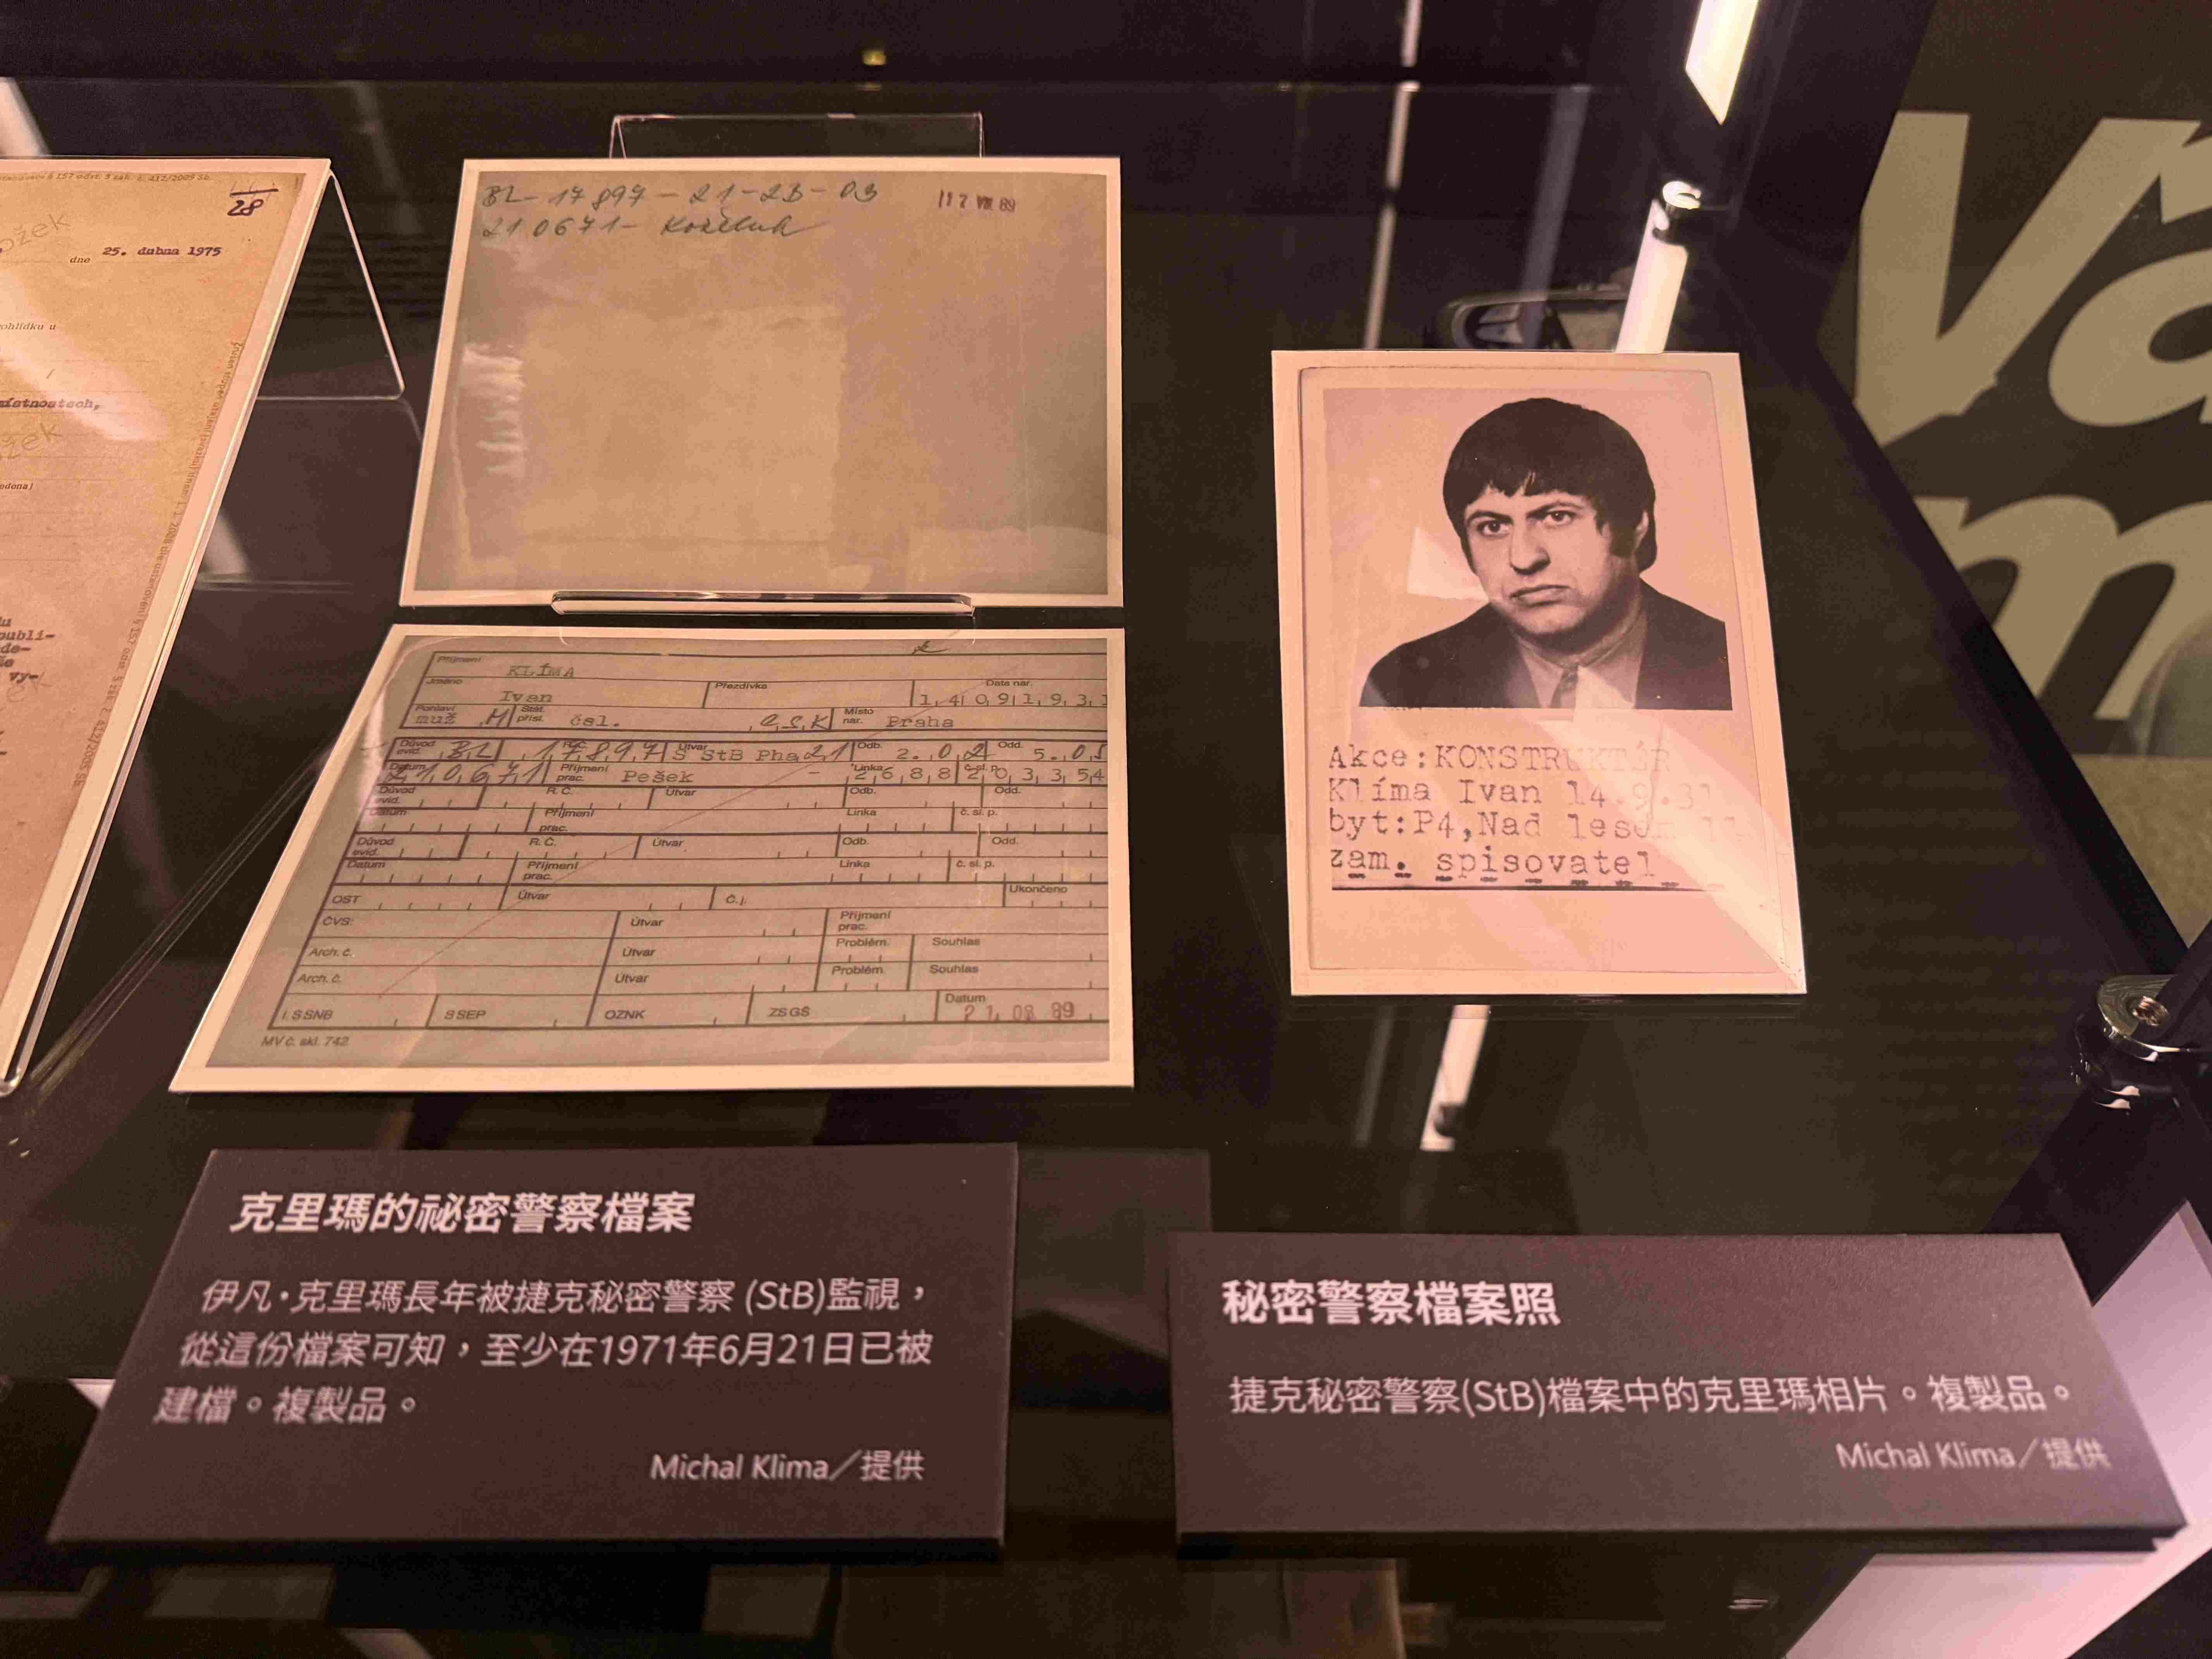 28
dne 25. dubna 1975
ohlídku u
ístnostech,
BL-17897-21-23-03
210671- Koželuh
17 VIII 89
Příjmení KLÍMA
Jméno Ivan Přezdívka Data nar. 14091931
Pohlaví muž M Stát. přísl. čsl. CSK Místo nar. Praha
Důvod evid. BL 17897 Útvar S StB Pha 21 Odb. 2. 02 Odd. 5.
Datum 210671 Příjmení prac. Pešek Linka 2688 203354
Důvod evid. R. Č. Útvar Odb. Odd.
Datum Příjmení prac. Linka č. sl. p.
Důvod evid. R. Č. Útvar Odb. Odd.
Datum Příjmení prac. Linka č. sl. p.
OST Útvar Č.j. Ukončeno
ČVS: Útvar Příjmení prac.
Arch. č. Útvar Problém. Souhlas
Arch. č. Útvar Problém. Souhlas
I. SSNB SSEP OZNK ZSGŠ Datum 21. 08. 89
MV č. skl. 742
Akce:KONSTRUKTÉR
Klíma Ivan 14.9.31
byt:P4,Nad lesem
zam. spisovatel
克里瑪的祕密警察檔案
伊凡·克里瑪長年被捷克秘密警察 (StB)監視，
從這份檔案可知，至少在1971年6月21日已被
建檔。複製品。
Michal Klima／提供
秘密警察檔案照
捷克秘密警察(StB)檔案中的克里瑪相片。複製品。
Michal Klima／提供